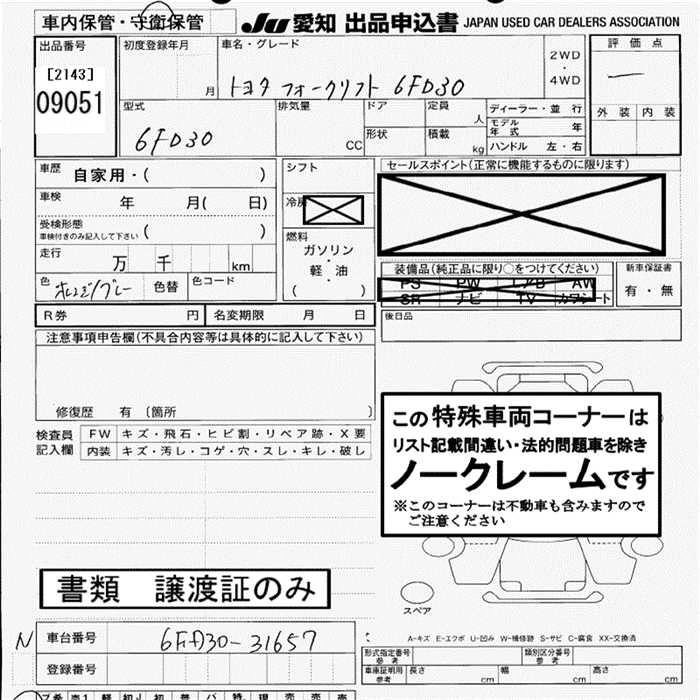 車内保管・守衛保管
JU 愛知 出品申込書 JAPAN USED CAR DEALERS ASSOCIATION
出品番号
[2143]
09051
初度登録年月
月
車名・グレード
トヨタ フォークリフト 6FD30
2WD
・
4WD
評価点
外装 内装
型式
6FD30
排気量
CC
ドア
形状
定員
人
積載
kg
ディーラー・並行
モデル年式 年
ハンドル 左・右
車歴
自家用・( )
車検
年 月( 日)
受検形態
車検付きのみ記入して下さい ( )
走行
万 千 km
色
オレンジ/グレー
色替
色コード
シフト
冷房
燃料
ガソリン
・
軽・油
( )
セールスポイント(正常に機能するものに限ります)
装備品(純正品に限り○をつけてください)
PS PW エアB AW
SR ナビ TV カワシート
新車保証書
有・無
R券 円
名変期限 月 日
後日品
注意事項申告欄(不具合内容等は具体的に記入して下さい)
修復歴 有 〔箇所 〕
検査員記入欄
FW キズ・飛石・ヒビ割・リペア跡・X要
内装 キズ・汚レ・コゲ・穴・スレ・キレ・破レ
この特殊車両コーナーは
リスト記載間違い・法的問題車を除き
ノークレームです
※このコーナーは不動車も含みますので
ご注意ください
書類 譲渡証のみ
スペア
N
車台番号
6FD30-31657
登録番号
A-キズ E-エクボ U-凹み W-補修跡 S-サビ C-腐食 XX-交換済
形式指定番号
参考
類別区分番号
参考
車庫証明用
参考
長さ cm
幅 cm
高さ cm